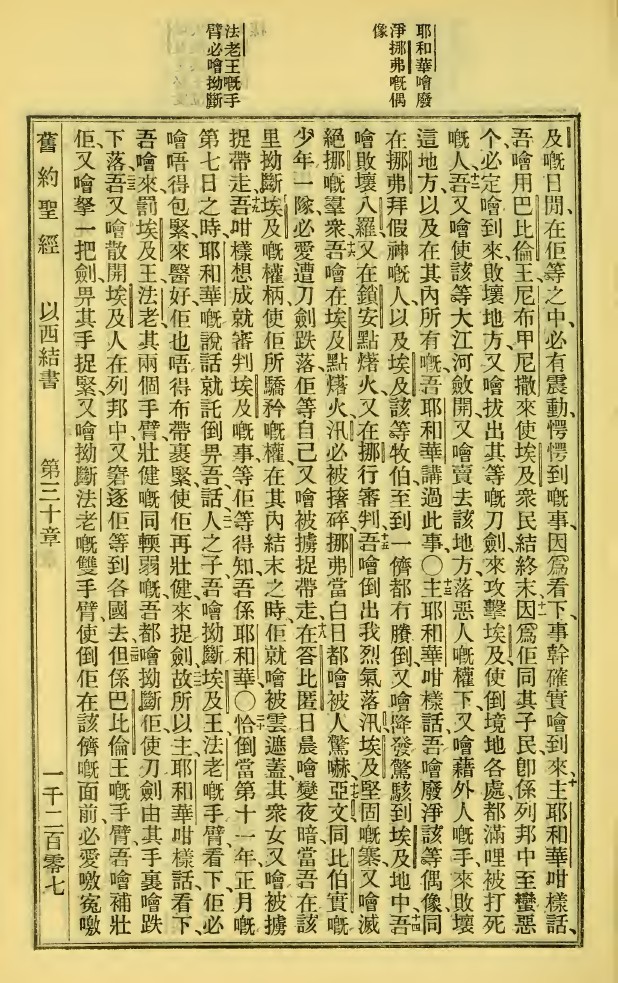 耶和華噲廢
淨挪弗嘅偶
像
法老王嘅手
臂必噲拗斷
及嘅日閒、在佢等之中、必有震動、愕愕到嘅事、因爲看下、事幹確實噲到來、十主耶和華咁樣話、
吾噲用巴比倫王尼布甲尼撒來、使埃及衆民結終末、十一因爲佢同其子民、卽係列邦中至蠻惡
个、必定噲到來敗壞地方、又噲拔出其等嘅刀劍來攻擊埃及、使倒境地各處都滿哩被打死
嘅人、十二吾又噲使該等大江河斂開、又噲賣去該地方、落惡人嘅權下、又噲藉外人嘅手來敗壞
這地方、以及在其內所有嘅、吾耶和華講過此事、○十三主耶和華咁樣話、吾噲廢淨該等偶像、同
在挪弗拜假神嘅人、以及埃及該等牧伯、至到一儕都冇賸倒、又噲降發驚駭到埃及地中、十四吾
噲敗壞八羅、又在鎖安點㷮火、又在挪行審判、十五吾噲倒出我烈氣落汛、埃及堅固嘅寨、又噲滅
絕挪嘅羣衆、十六吾噲在埃及點㷮火、汛必被搇碎、挪弗當白日都噲被人驚嚇、十七亞文同比伯實嘅
少年一隊、必愛遭刀劍跌落、佢等自己又噲被擄捉帶走、十八在答比匿日晨噲變夜暗、當吾在該
里拗斷埃及嘅權柄、使佢所驕矜嘅權、在其內結末之時、佢就噲被雲遮蓋、其衆女又噲被擄
捉帶走、十九吾咁樣想成就審判埃及嘅事、佢等得知吾係耶和華、○二十恰倒當第十一年、正月嘅
第七日之時、耶和華嘅說話、就託倒畀吾話、二一人之子、吾噲拗斷埃及王法老嘅手臂、看下、佢必
噲唔得包緊來醫好佢、也唔得布帶裏緊、使佢再壯健來捉劍、二二故所以主耶和華咁樣話、看下、
吾噲來罰埃及王法老、其兩個手臂、壯健嘅同輭弱嘅、吾都噲拗斷佢、使刀劍由其手裏噲跌
下落、二三吾又噲散開埃及人在列邦中、又窘逐佢等到各國去、二四但係巴比倫王嘅手臂、吾噲補壯
佢、又噲拏一把劍、畀其手捉緊、又噲拗斷法老嘅雙手臂、使倒佢在該儕嘅面前、必愛噭寃噭
舊約聖經 以西結書 第三十章 一千二百零七